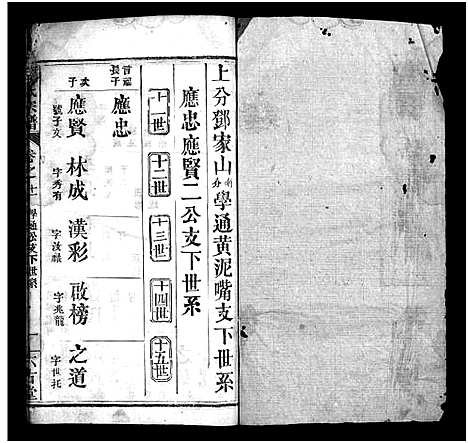 上分鄧家山分學通黄泥嘴支下世系
應忠應賢二公支下世系
十一世 十二世 十三世 十四世 十五世
首冠長子 應忠
次子 應賢 林成 漢彩 啟榜 之道
號子友 字秀有 字汝祿 字兆龍 字世托
氏宗譜 卷之廿 學通公支下世系 一 六古堂